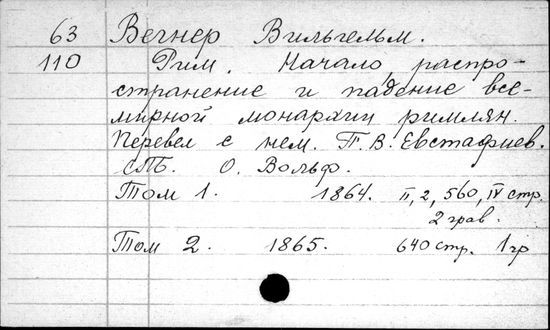 63 Вегнер Вильгельм.
110 Рим. Начало, распро-
странение и падение все-
мирной монархии римлян.
Перевел с нем. П. В. Евстафиев.
СПб. О. Вольф.
Том 1. 1864. II, 2, 560, IV стр.
2 грав.
Том 2. 1865. 640 стр. 1 гр